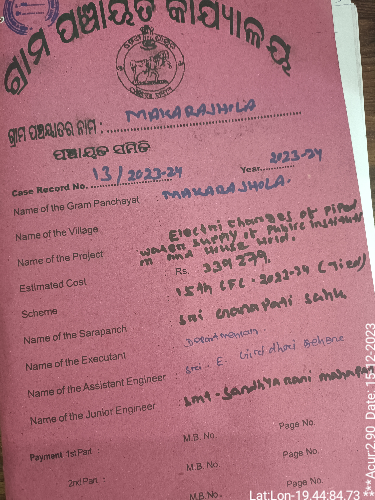 ଗ୍ରାମ ପଞ୍ଚାୟତ କାର୍ଯ୍ୟାଳୟ
ଗ୍ରାମ ପଞ୍ଚାୟତର ନାମ : MAKARAJHOLA
ପଞ୍ଚାୟତ ସମିତି
Case Record No. 13/2023-24 Year 2023-24
Name of the Gram Panchayat MAKARAJHOLA.
Name of the Village
Name of the Project Electri Charges of Piped
water supply of Public Institution
and House hold.
Estimated Cost Rs. 339279.
Scheme 15th CFC-2023-24 (Tied)
Name of the Sarapanch Sri Sahu
Name of the Executant Departmental
Name of the Assistant Engineer : Sri. E. Giridhari Behera
Name of the Junior Engineer : Smt. Sandhya Rani
Payment 1st Part : M.B. No. Page No.
2nd Part : M.B. No. Page No.
M.B. No. Page No.
Lat:Lon-19.44:84.73
***Acur:2.90 Date:15-12-2023